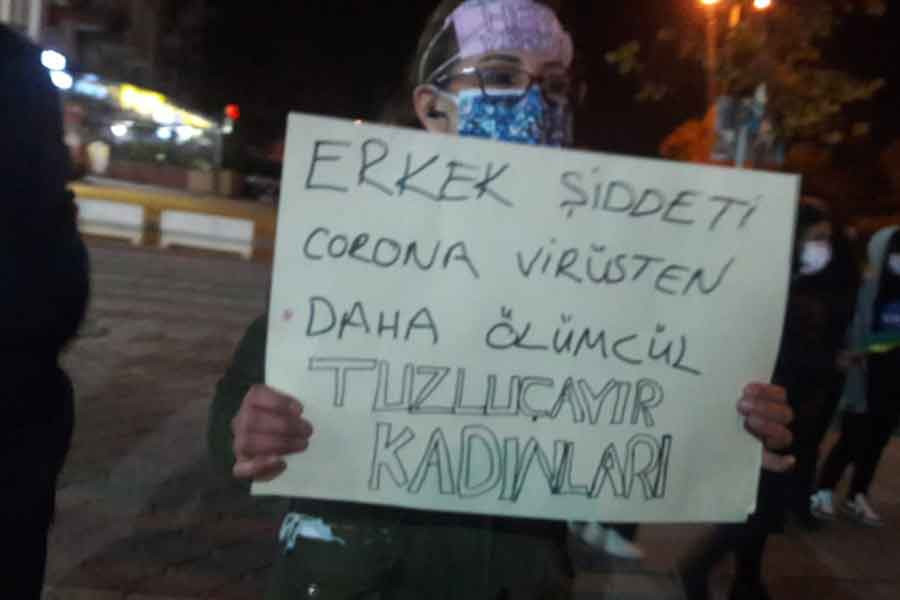 ERKEK ŞİDDETİ
CORONA VİRÜSTEN
DAHA ÖLÜMCÜL
TUZLUÇAYIR
KADINLARI